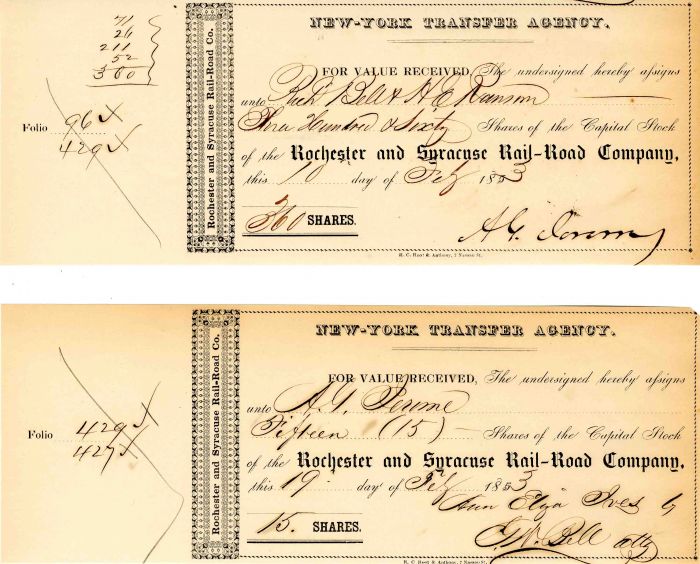 71
26
211
52
360
NEW-YORK TRANSFER AGENCY.
FOR VALUE RECEIVED, The undersigned hereby assigns
unto Rich Bell & H E Ransom
Three Hundred & Sixty Shares of the Capital Stock
of the Rochester and Syracuse Rail-Road Company,
this 10 day of Feby 1853
360 SHARES.
A. G.
Folio 96
429
Rochester and Syracuse Rail-Road Co.
R. C. Root & Anthony, 7 Nassau St.
NEW-YORK TRANSFER AGENCY.
FOR VALUE RECEIVED, The undersigned hereby assigns
unto A. G.
Fifteen (15) Shares of the Capital Stock
of the Rochester and Syracuse Rail-Road Company,
this 19 day of Feby 1853
Ann Eliza Ives by
15. SHARES.
J. W. Bell atty
Folio 429
427
Rochester and Syracuse Rail-Road Co.
R. C. Root & Anthony, 7 Nassau St.